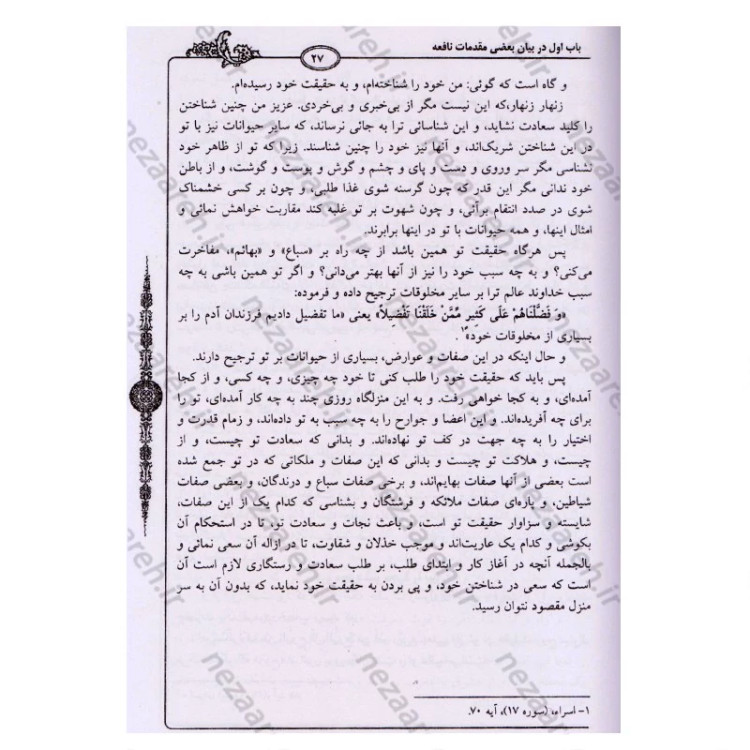 باب اول در بیان بعضی مقدمات نافعه
۲۷
و گاه است که گوئی: من خود را شناخته‌ام، و به حقیقت خود رسیده‌ام.
زنهار زنهار،که این نیست مگر از بی‌خبری و بی‌خردی. عزیز من چنین شناختن
را کلید سعادت نشاید، و این شناسائی ترا به جائی نرساند، که سایر حیوانات نیز با تو
در این شناختن شریک‌اند، و آنها نیز خود را چنین شناسند. زیرا که تو از ظاهر خود
نشناسی مگر سر وروی و دست و پای و چشم و گوش و پوست و گوشت، و از باطن
خود ندانی مگر این قدر که چون گرسنه شوی غذا طلبی، و چون بر کسی خشمناک
شوی در صدد انتقام برآئی، و چون شهوت بر تو غلبه کند مقاربت خواهش نمائی و
امثال اینها، و همه حیوانات با تو در اینها برابرند.
پس هرگاه حقیقت تو همین باشد از چه راه بر «سباع» و «بهائم»، مفاخرت
می‌کنی؟ و به چه سبب خود را نیز از آنها بهتر می‌دانی؟ و اگر تو همین باشی به چه
سبب خداوند عالم ترا بر سایر مخلوقات ترجیح داده و فرموده:
«وَ فَضَّلْنَاهُمْ عَلَی کَثِیرٍ مِمَّنْ خَلَقْنَا تَفْضِیلاً» یعنی «ما تفضیل دادیم فرزندان آدم را بر
بسیاری از مخلوقات خود»۱.
و حال اینکه در این صفات و عوارض، بسیاری از حیوانات بر تو ترجیح دارند.
پس باید که حقیقت خود را طلب کنی تا خود چه چیزی، و چه کسی، و از کجا
آمده‌ای، و به کجا خواهی رفت. و به این منزلگاه روزی چند به چه کار آمده‌ای، تو را
برای چه آفریده‌اند. و این اعضا و جوارح را به چه سبب به تو داده‌اند، و زمام قدرت و
اختیار را به چه جهت در کف تو نهاده‌اند. و بدانی که سعادت تو چیست، و از
چیست، و هلاکت تو چیست و بدانی که این صفات و ملکاتی که در تو جمع شده
است بعضی از آنها صفات بهایم‌اند، و برخی صفات سباع و درندگان، و بعضی صفات
شیاطین، و پاره‌ای صفات ملائکه و فرشتگان و بشناسی که کدام یک از این صفات،
شایسته و سزاوار حقیقت تو است، و باعث نجات و سعادت تو، تا در استحکام آن
بکوشی و کدام یک عاریت‌اند و موجب خذلان و شقاوت، تا در ازاله آن سعی نمائی و
بالجمله آنچه در آغاز کار و ابتدای طلب، بر طلب سعادت و رستگاری لازم است آن
است که سعی در شناختن خود، و پی بردن به حقیقت خود نماید، که بدون آن به سر
منزل مقصود نتوان رسید.
۱- اسراء، (سوره ۱۷)، آیه ۷۰.
nezaareh.ir